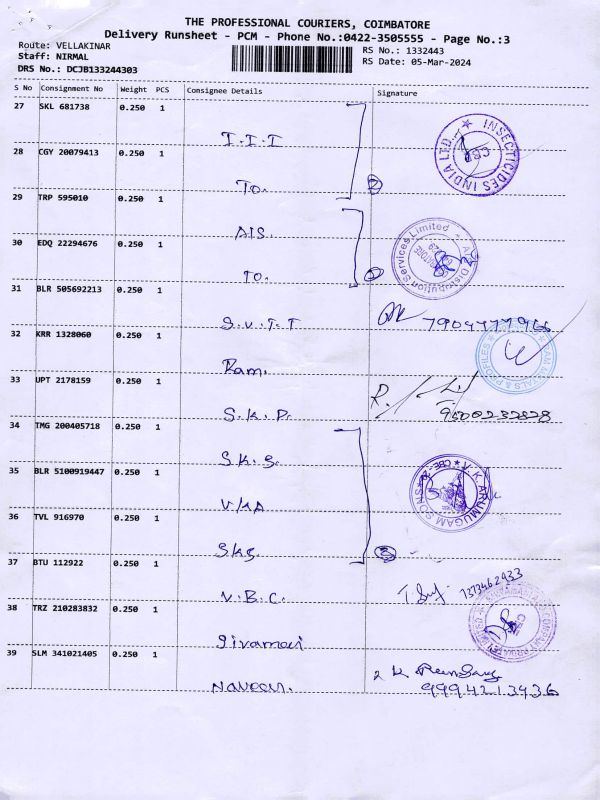 THE PROFESSIONAL COURIERS, COIMBATORE
Delivery Runsheet - PCM - Phone No.:0422-3505555 - Page No.:3
Route: VELLAKINAR
RS No.: 1332443
Staff: NIRMAL
RS Date: 05-Mar-2024
DRS No.: DCJB133244303
S No Consignment No Weight PCS Consignee Details Signature
27 SKL 681738 0.250 1
I.I.I
INSECTICIDES INDIA LTD. CBE
28 CGY 20079413 0.250 1
To. 2
29 TRP 595010 0.250 1
AIS.
Distribution Services Limited
30 EDQ 22294676 0.250 1
To.
31 BLR 505692213 0.250 1
S.V.I.T 7904777966
32 KRR 1328060 0.250 1
Ram.
METALS & PROFILES
33 UPT 2178159 0.250 1
S.K.P. 9500232828
34 TMG 200405718 0.250 1
S.K.S.
V.K. ARUMUGAM SONS
35 BLR 5100919447 0.250 1
VKA
36 TVL 916970 0.250 1
SKS. 3
37 BTU 112922 0.250 1
V.B.C. 7373462933
38 TRZ 210283832 0.250 1
Sivamani
39 SLM 341021405 0.250 1
Naveen. 9994213936